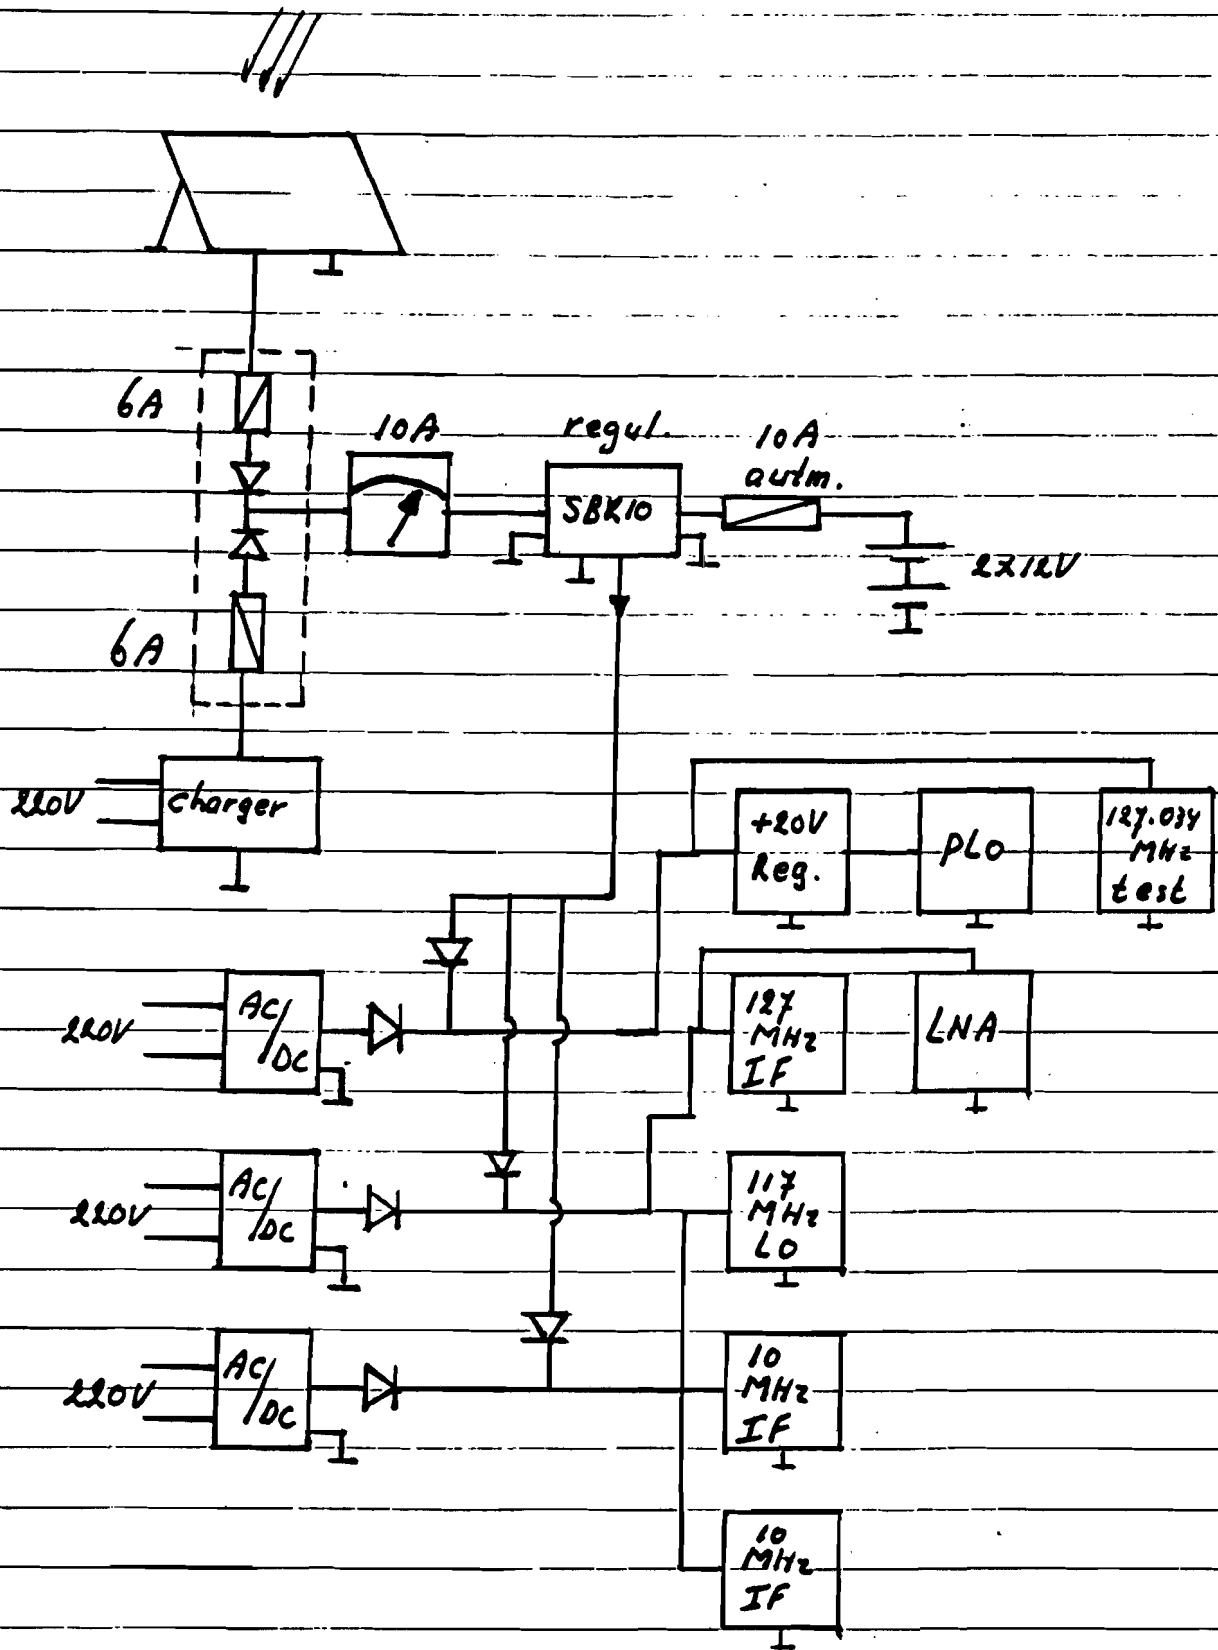 6A
10A
regul.
10A
autm.
SBK10
2x12V
6A
220V
charger
+20V
Reg.
PLO
127.034
MHz
test
220V
AC/
DC
127
MHz
IF
LNA
220V
AC/
DC
117
MHz
LO
220V
AC/
DC
10
MHz
IF
10
MHz
IF